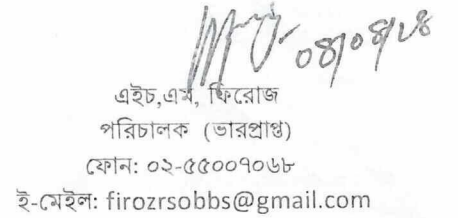 এইচ,এম, ফিরোজ
পরিচালক (ভারপ্রাপ্ত)
ফোন: ০২-৫৫০০৭০৬৮
ই-মেইল: firozrsobbs@gmail.com